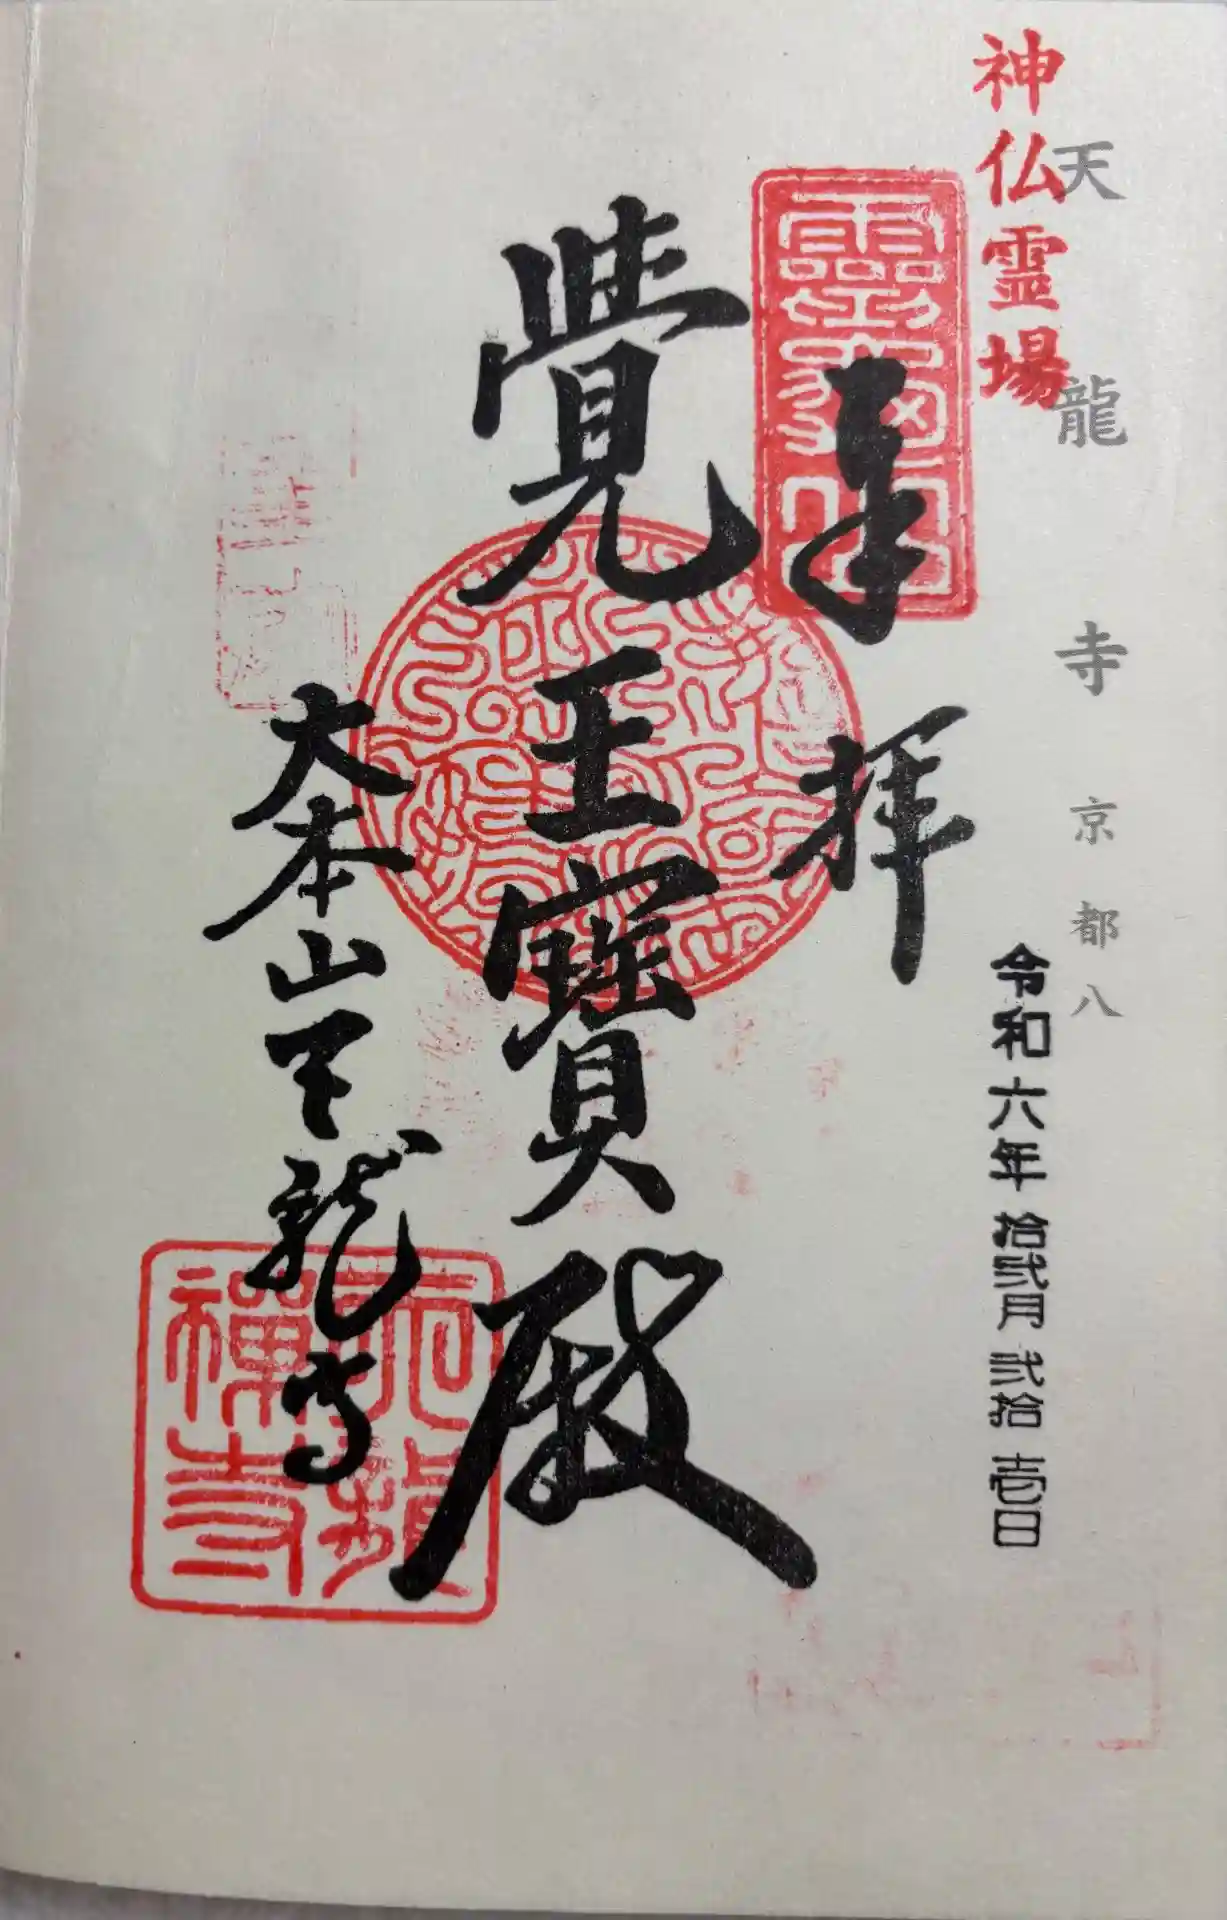 天龍寺 京都八
神仏霊場
令和六年拾弐月弐拾壱日
奉拝
覺王寶殿
大本山天龍寺
禅寺